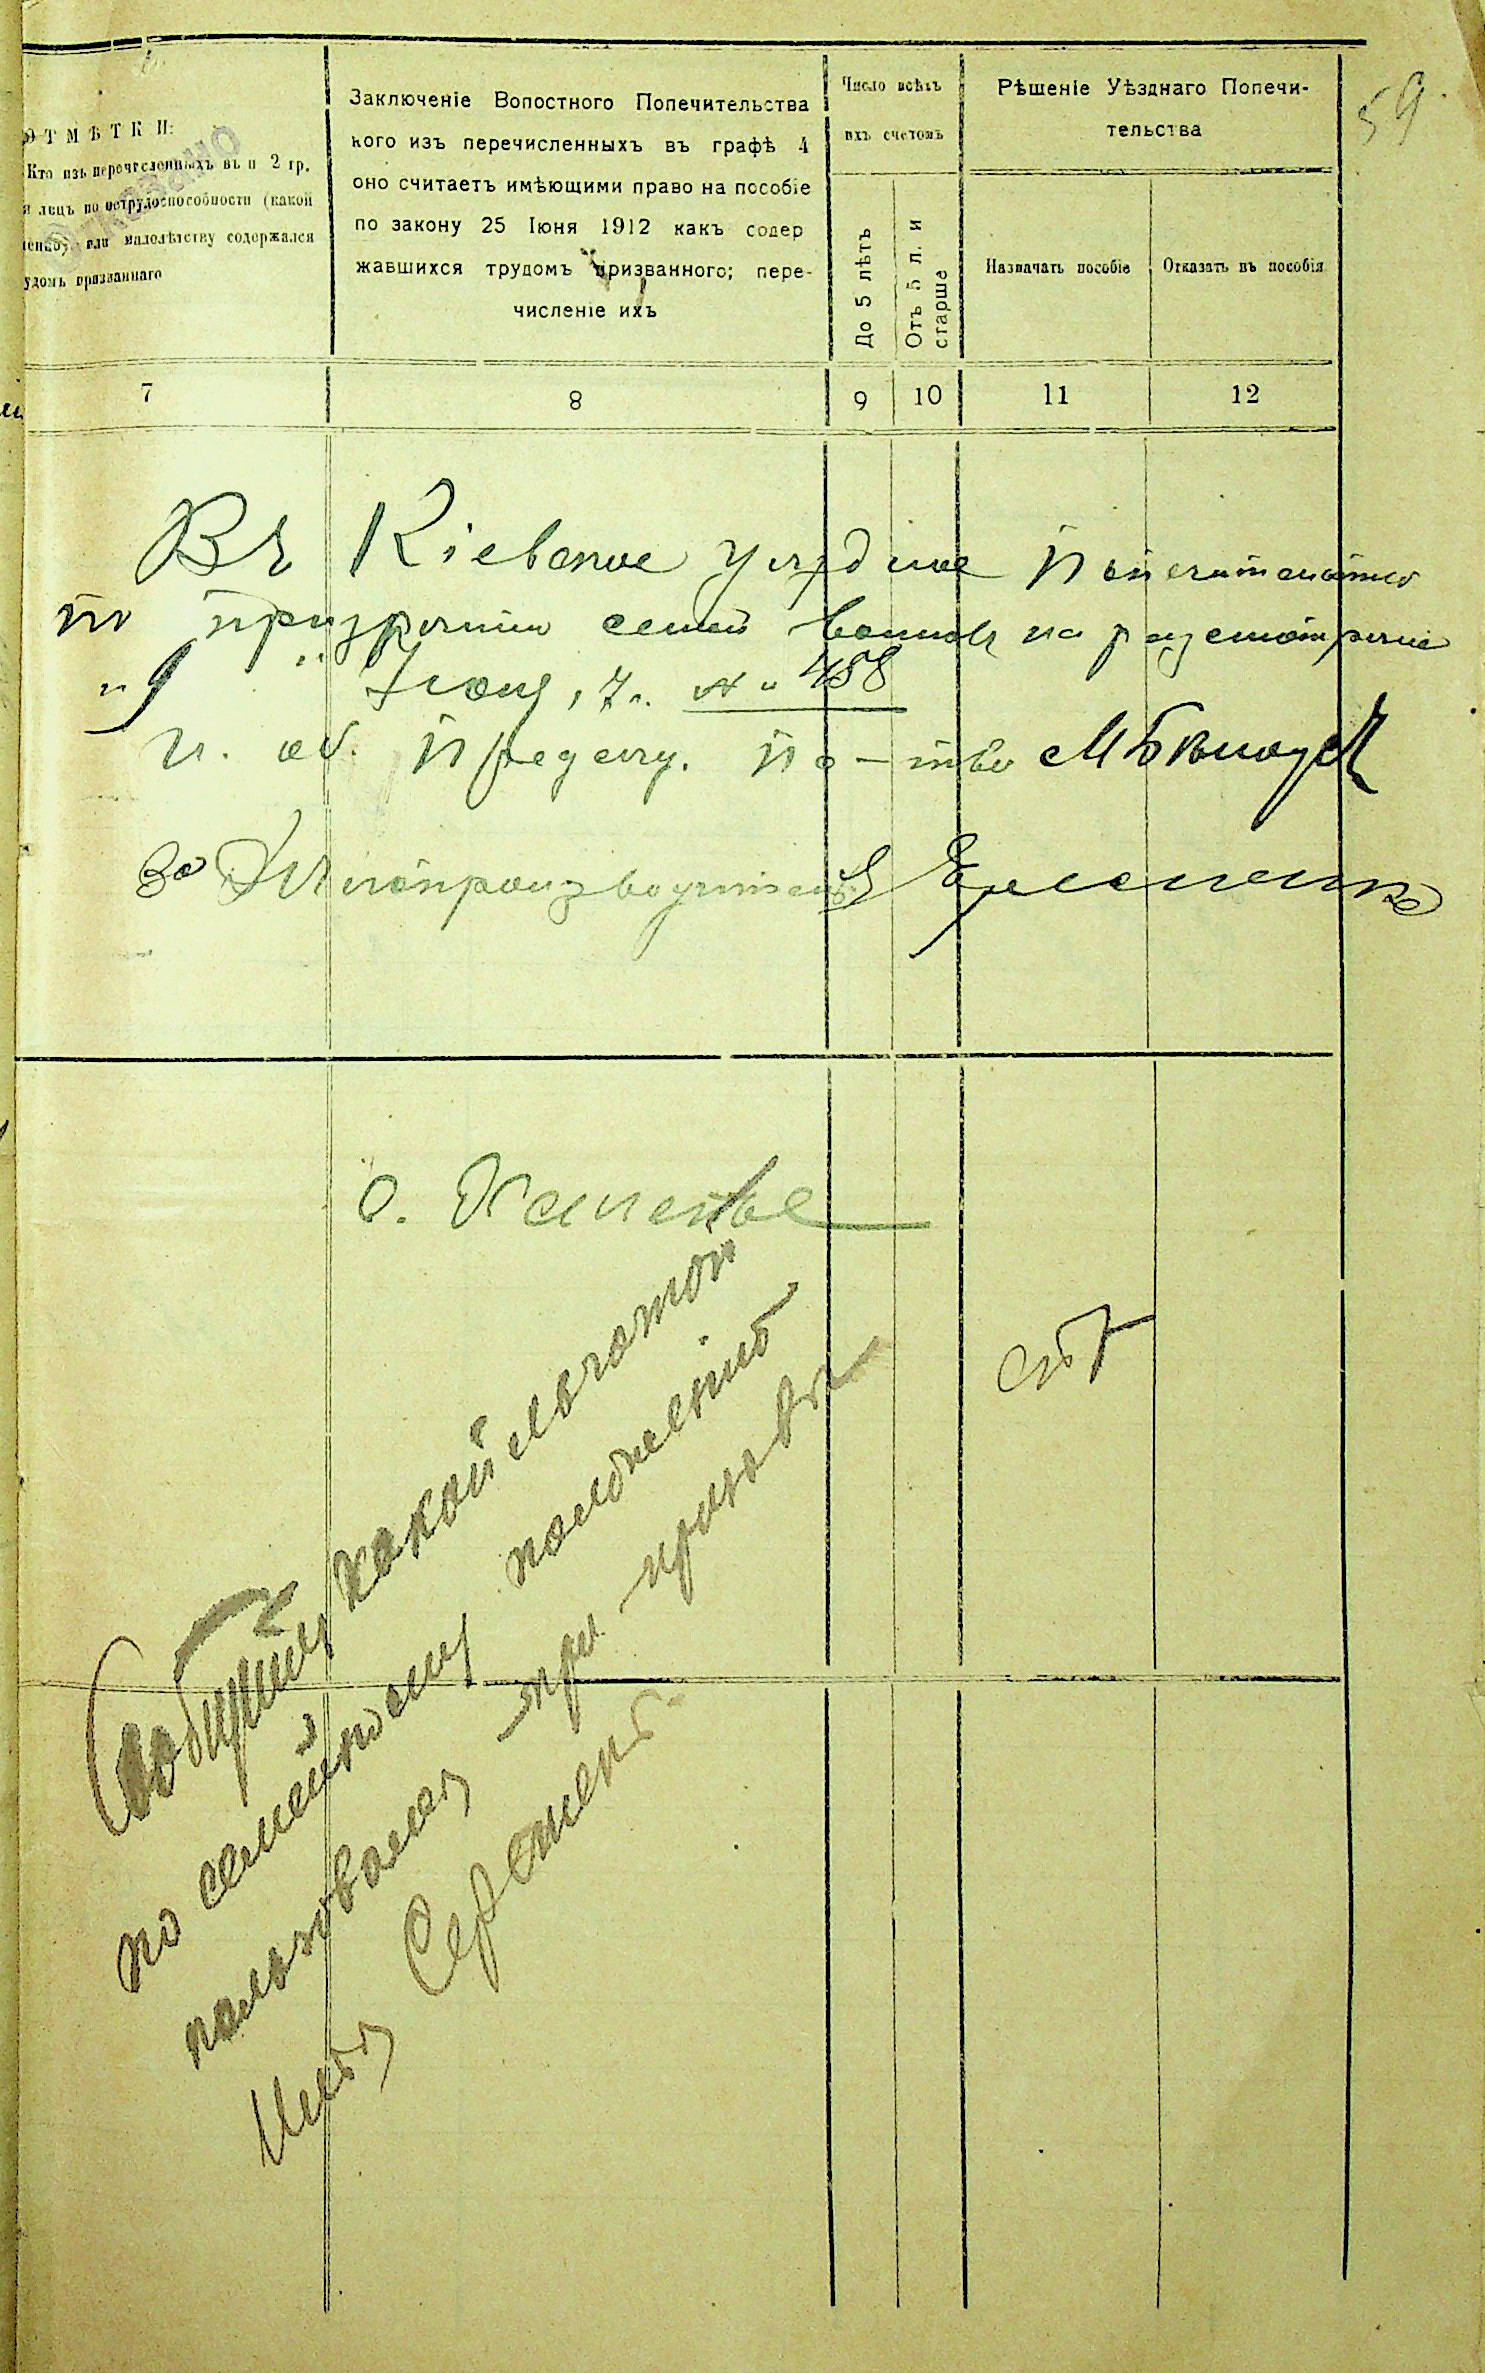 59.
ОТМѢТКИ:
Кто изъ перечисленныхъ въ п 2 гр.
и лицъ по нетрудоспособности (какой
или малолѣтству содержался
удомъ призваннаго
Отказано
Заключеніе Волостного Попечительства
кого изъ перечисленныхъ въ графѣ 4
оно считаетъ имѣющими право на пособіе
по закону 25 Іюня 1912 какъ содер
жавшихся трудомъ призванного; пере-
численіе ихъ
Число всѣхъ
ихъ счетомъ
До 5 лѣтъ
Отъ 5 л. и
старше
Рѣшеніе Уѣзднаго Попечи-
тельства
Назначать пособіе
Отказать въ пособіи
7
8
9
10
11
12
Въ Кіевское уѣздное Попечительство
по призрѣнію семей воиновъ на разсмотрѣніе
"9" 7г. № 458
И. об. Предсѣд. По-тва
За Дѣлопроизводителя
О.
Сообщить какой льготой
по семейному положенію
пользовался при призывѣ